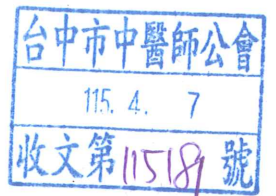 台中市中醫師公會
115. 4. 7
收文第115189號